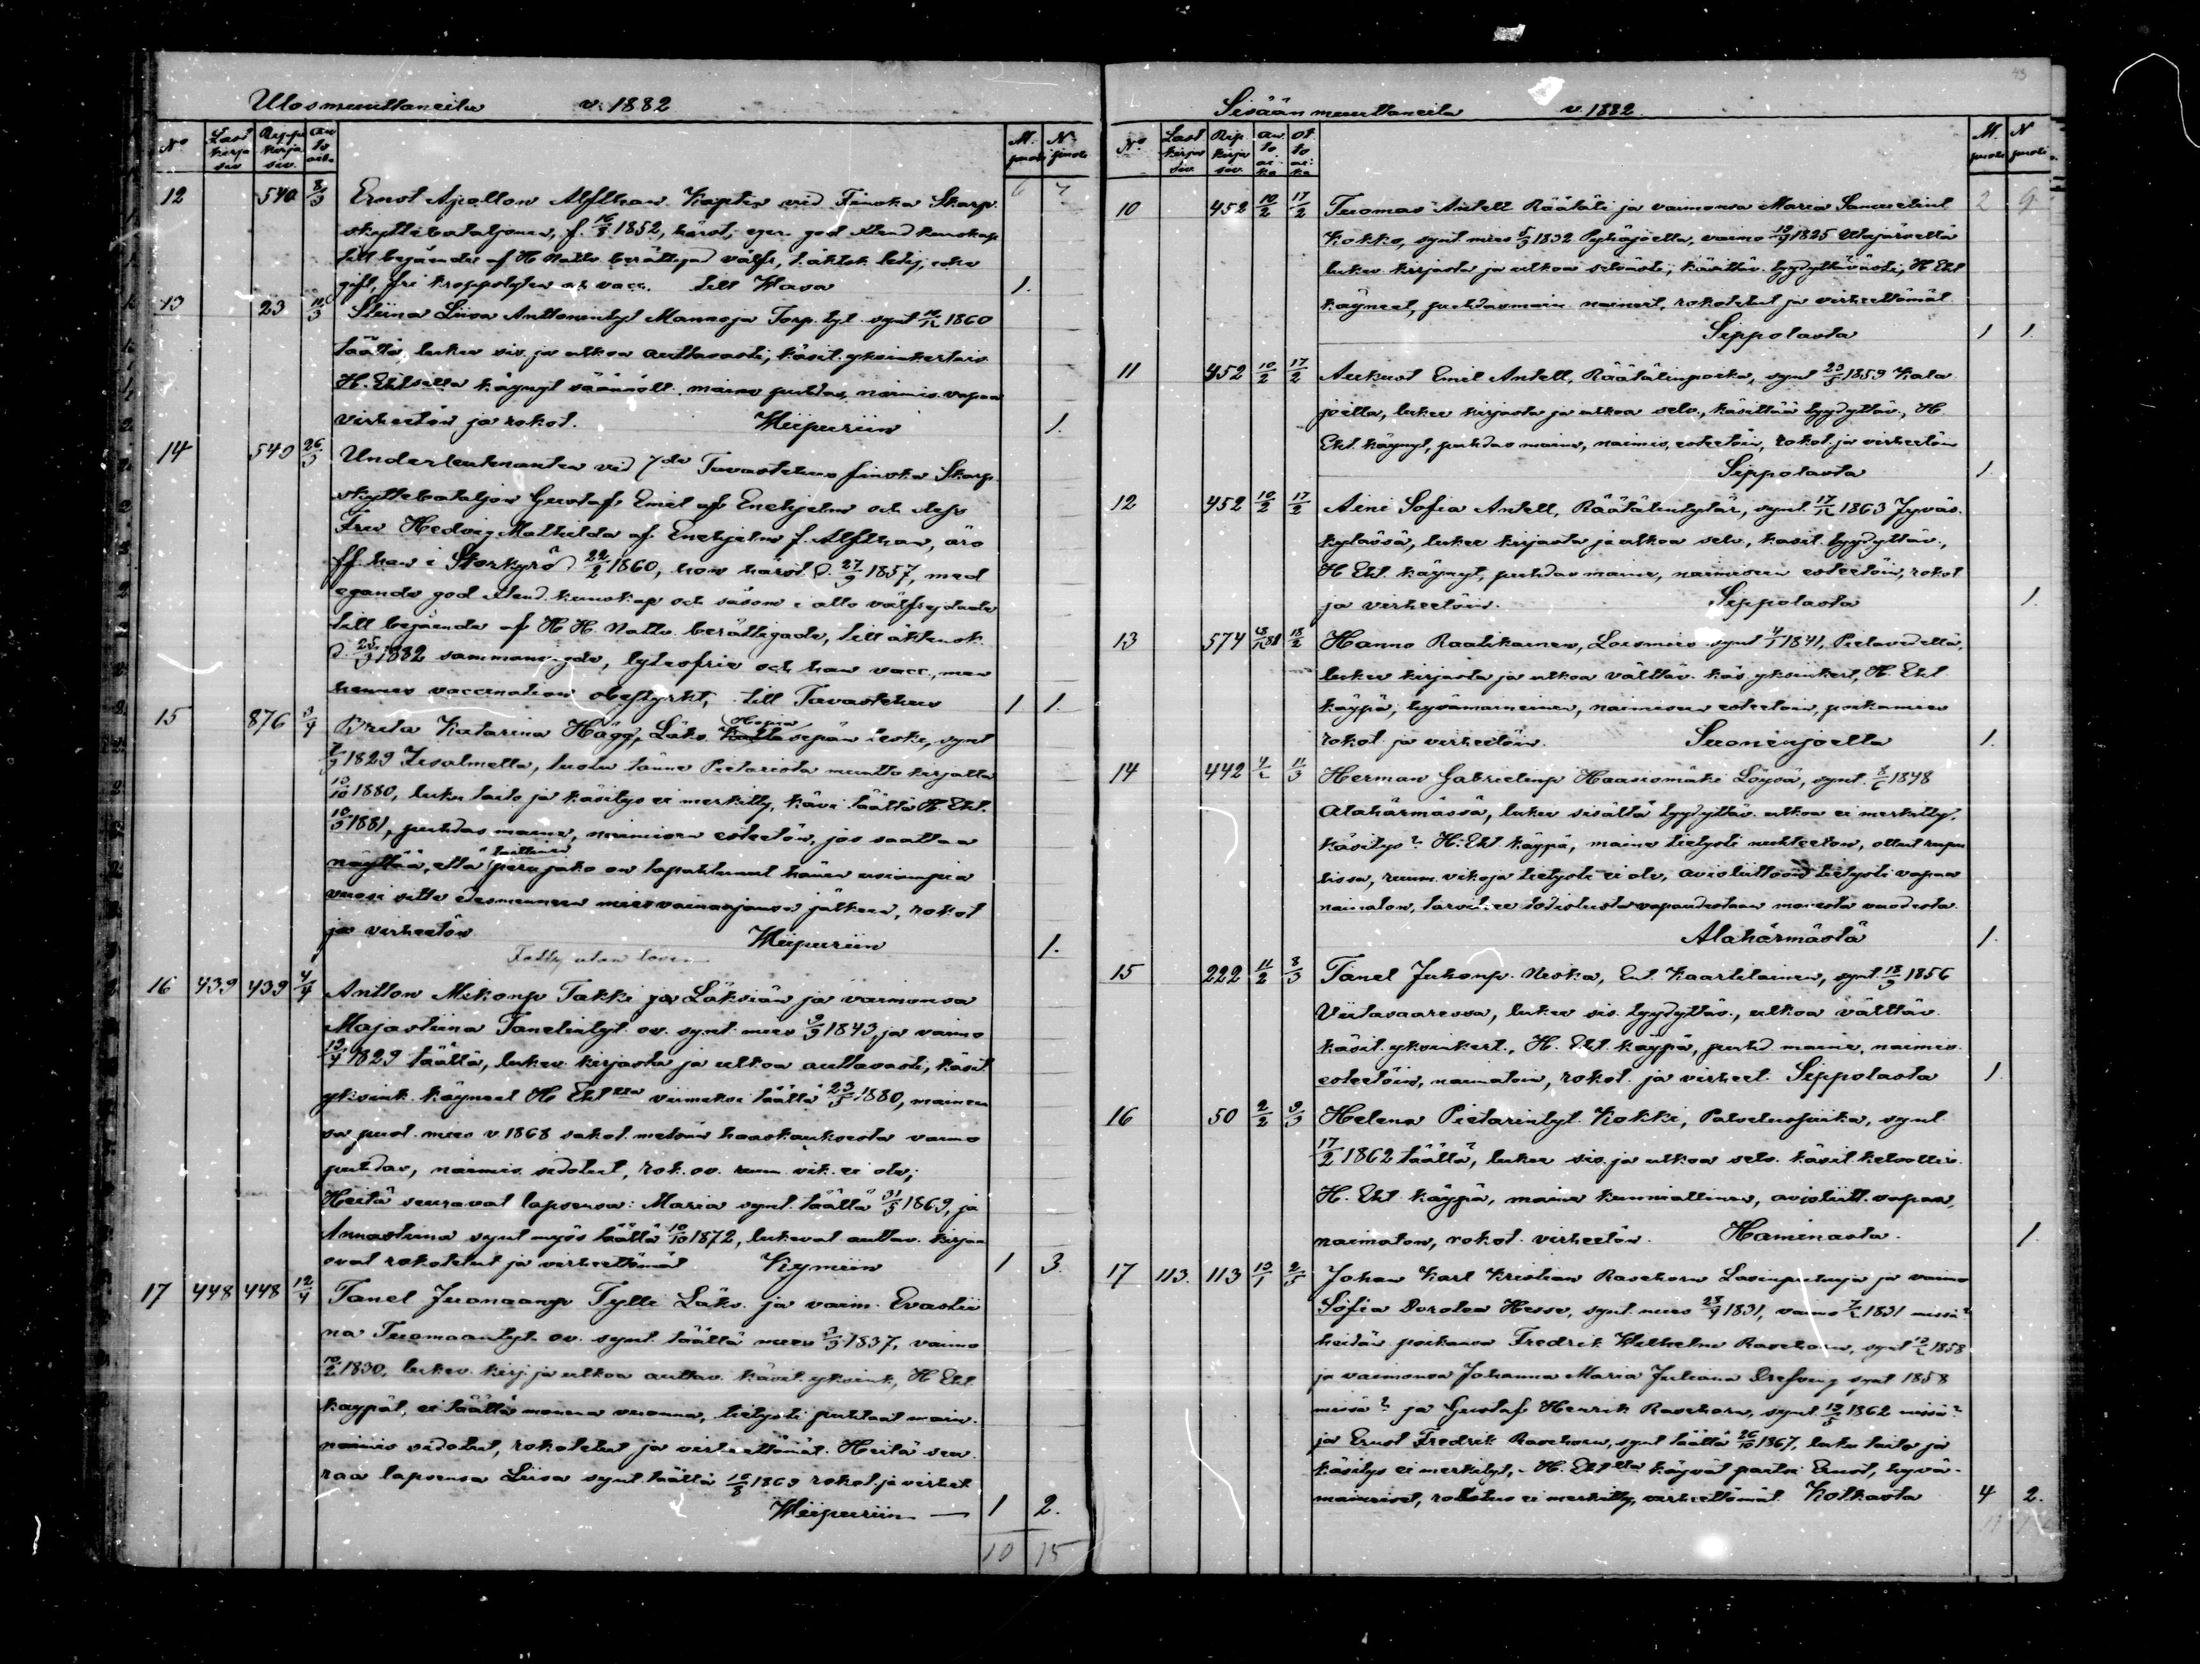 43
Ulosmuuttaneita v. 1882
No Last kirja siv Ripp. kirja siv. an to aika M. puoli N. puoli
12 540 8/3 Ernst Apollon Alfthan Kapten vid Finska Skarp- 6 7
skyttebataljonen, f. 16/8 1852, härst, eger god krist. kunskap
till begående af H Nattv. berättigad välfr, t. äktsk. ledig, icke
gift, fri kroppslyten o. vacc. till Wasa 1.
13 23 3 Stiina Liisa Anttonintyt Mannoja Torp. tyt. synt 1860
täältä, lukee sis. ja ulkoa auttavasti, käsit. yksinkertais.
H. Ehtsella käynyt säännöll. maine puhdas, naimis. vapaa
virheetön ja rokot. Wiipuriin 1.
14 540 26/3 Underlöjtnanten vid 7de Tavastehus finska Skarp-
skyttebataljon Gustaf Emil af Enehjelm och dess
Fru Hedvig Mathilda af Enehjelm f. Alfthan, äro
ff. han i Storkyrö d. 22/2 1860, hon härst. d. 27/9 1857, med
egande god krist. kunskap och såsom i allo välfrejdade
till begående af H H. Nattv. berättigade, till äktensk.
d. 25/3 1882 sammanvigde, lytesfrie och han vacc., men
hennes vaccination obestyrkt, till Tavastehus 1 1
15 876 3/4 Brita Katarina Hägg, Läks. Hopea sepän leski, synt
1829 Iisalmella, tuotu tänne Pietarista muuttokirjalla
10/10 1880, luku taito ja käsitys ei merkitty, kävi täällä H. Eht.
10/3 1881, puhdas maine, naimiseen esteetön, jos saattaa
näyttää, että laillinen perujako on tapahtunut hänen useampia
vuosi sitte edesmenneen miesvainaajansa jälkeen, rokot
ja virheetön Wiipuriin 1.
16 439 439 4/4 Antton Mikonp Takki Läksiän ja vaimonsa
Majastiina Tanelintyt ov. synt. mies 9/9 1843, ja vaimo
1829 täältä, lukev. kirjasta ja ulkoa auttavasti, käsit
yksink. käyneet H Eht lla viimeksi täällä 23/5 1880, mainee
sa puol. mies v. 1868 sakot. metsän haaskauksesta vaimo
puhdas, naimis. sidotut, rok. ov. ruum. vik. ei ole;
Heitä seuraavat lapsensa: Maria synt. täällä 31/5 1869, ja
Annastiina synt myös täällä 10/10 1872, lukevat auttav. kirjaa
ovat rokotetut ja virheettömät Kymiin 1 3.
17 448 448 12/4 Tanel Juonaanp Tylli Läks. ja vaim. Evastii
na Tuomaantyt ov. synt. täällä mies 1837, vaimo
1830, lukev. kirj. ja ulkoa auttav. käsit. yksink, H Eht
käypät, ei täällä monena vuonna, tietysti puhtaat main.
naimis sidotut, rokotetut ja virheettömät. Heitä seu-
raa lapsensa Liisa synt. täällä 10/8 1869 rokot. ja virhet
Wiipuriin 1 2.
10 15
Sisään muuttaneita v. 1882.
No. Last kirja siv. Rip. kirja siv. an. to ai- ka ot to ai- ka M. puoli N puoli
10 452 10/2 17/2 Tuomas Antell Räätäli ja vaimonsa Maria Samuelint 2 9.
Kokko, synt. mies 5/3 1832 Pyhäjoella, vaimo 1825 Utajärvellä
lukev kirjasta ja ulkoa selvästi, käsittäv. tyydyttävästi, H Eht
käyneet, puhdasmain. naineet, rokotetut ja virheettömät
Sippolasta 1 1.
11 452 10/2 17/2 Aukust Emil Antell, Räätälinpoika, synt. 23/5 1859 Kala
joella, lukee kirjasta ja ulkoa selv., käsittää tyydyttäv., H
Eht. käynyt, puhdas maine, naimis, esteetöin, rokot. ja virheetön
Sippolasta 1.
12 452 10/2 17/2 Aini Sofia Antell, Räätälintytär, synt. 1863 Jyväs-
kylässä, lukee kirjasta ja ulkoa selv., käsit. tyydyttäv.,
H Eht. käynyt, puhdas maine, naimiseen esteetöin, rokot
ja virheetöin. Sippolasta 1.
13 574 18/2 Hanno Raatikainen, Loismies synt 1841, Pielavedellä,
lukee kirjasta ja ulkoa välttäv. käs. yksinkert, H. Eht
käypä, hyvämaineinen, naimiseen esteetöin, poikamies
rokot ja virheetöin. Suonenjoelta 1.
14 442 11/3 Herman Gabrielinp Haasiomäki Löysä, synt. 1848
Alahärmässä, lukee sisältä tyydyttäv. ulkoa ei merkitty.
käsitys? H. Eht käypä, maine tietysti nuhteeton, ollut
lissa, ruum. vikoja tietysti ei ole, avioliittoon tietysti vapaa
naimaton, tarvitsee todistusta vapaudestaan monesta vuodesta.
Alahärmästä 1.
15 222 11/2 8/3 Tanel Juhonp. Niska, Ent. Kaartilainen, synt. 18/9 1856
Viitasaaressa, lukee sis. tyydyttäv., ulkoa välttäv.
käsit. yksinkert., H. Eht. käypä, puhd. maine, naimis.
esteetöin, naimatoin, rokot. ja virheet. Sippolasta 1
16 50 2/2 9/3 Helena Pietarintyt. Kokki, Palveluspiika, synt
17/2 1862 täällä, lukee sis. ja ulkoa selv. käsit. kelvollis.
H. Eht. käypä, maine kunniallinen, avioliitt. vapaa,
naimaton, rokot. virheetön. Haminasta. 1.
17 113. 113 13/1 2/5 Johan Karl Kristian Raschorn Lasinpuhuja ja vaimo
Sofia Dorotea Hesse, synt. mies 1831, vaimo 1831 missä?
heidän poikansa Fredrik Wilhelm Raschorn, synt 1858
ja vaimonsa Johanna Maria Juliana synt 1858
missä? ja Gustaf Henrik Raschorn, synt. 12/5 1862 missä?
ja Ernst Fredrik Raschorn, synt täällä 26/10 1867, luku taito ja
käsitys ei merkityt, H. Eht lla käyvät paitsi Ernst, hyvä-
maineiset, rokotus ei merkitty, virheettömät. Kotkasta 4 2.